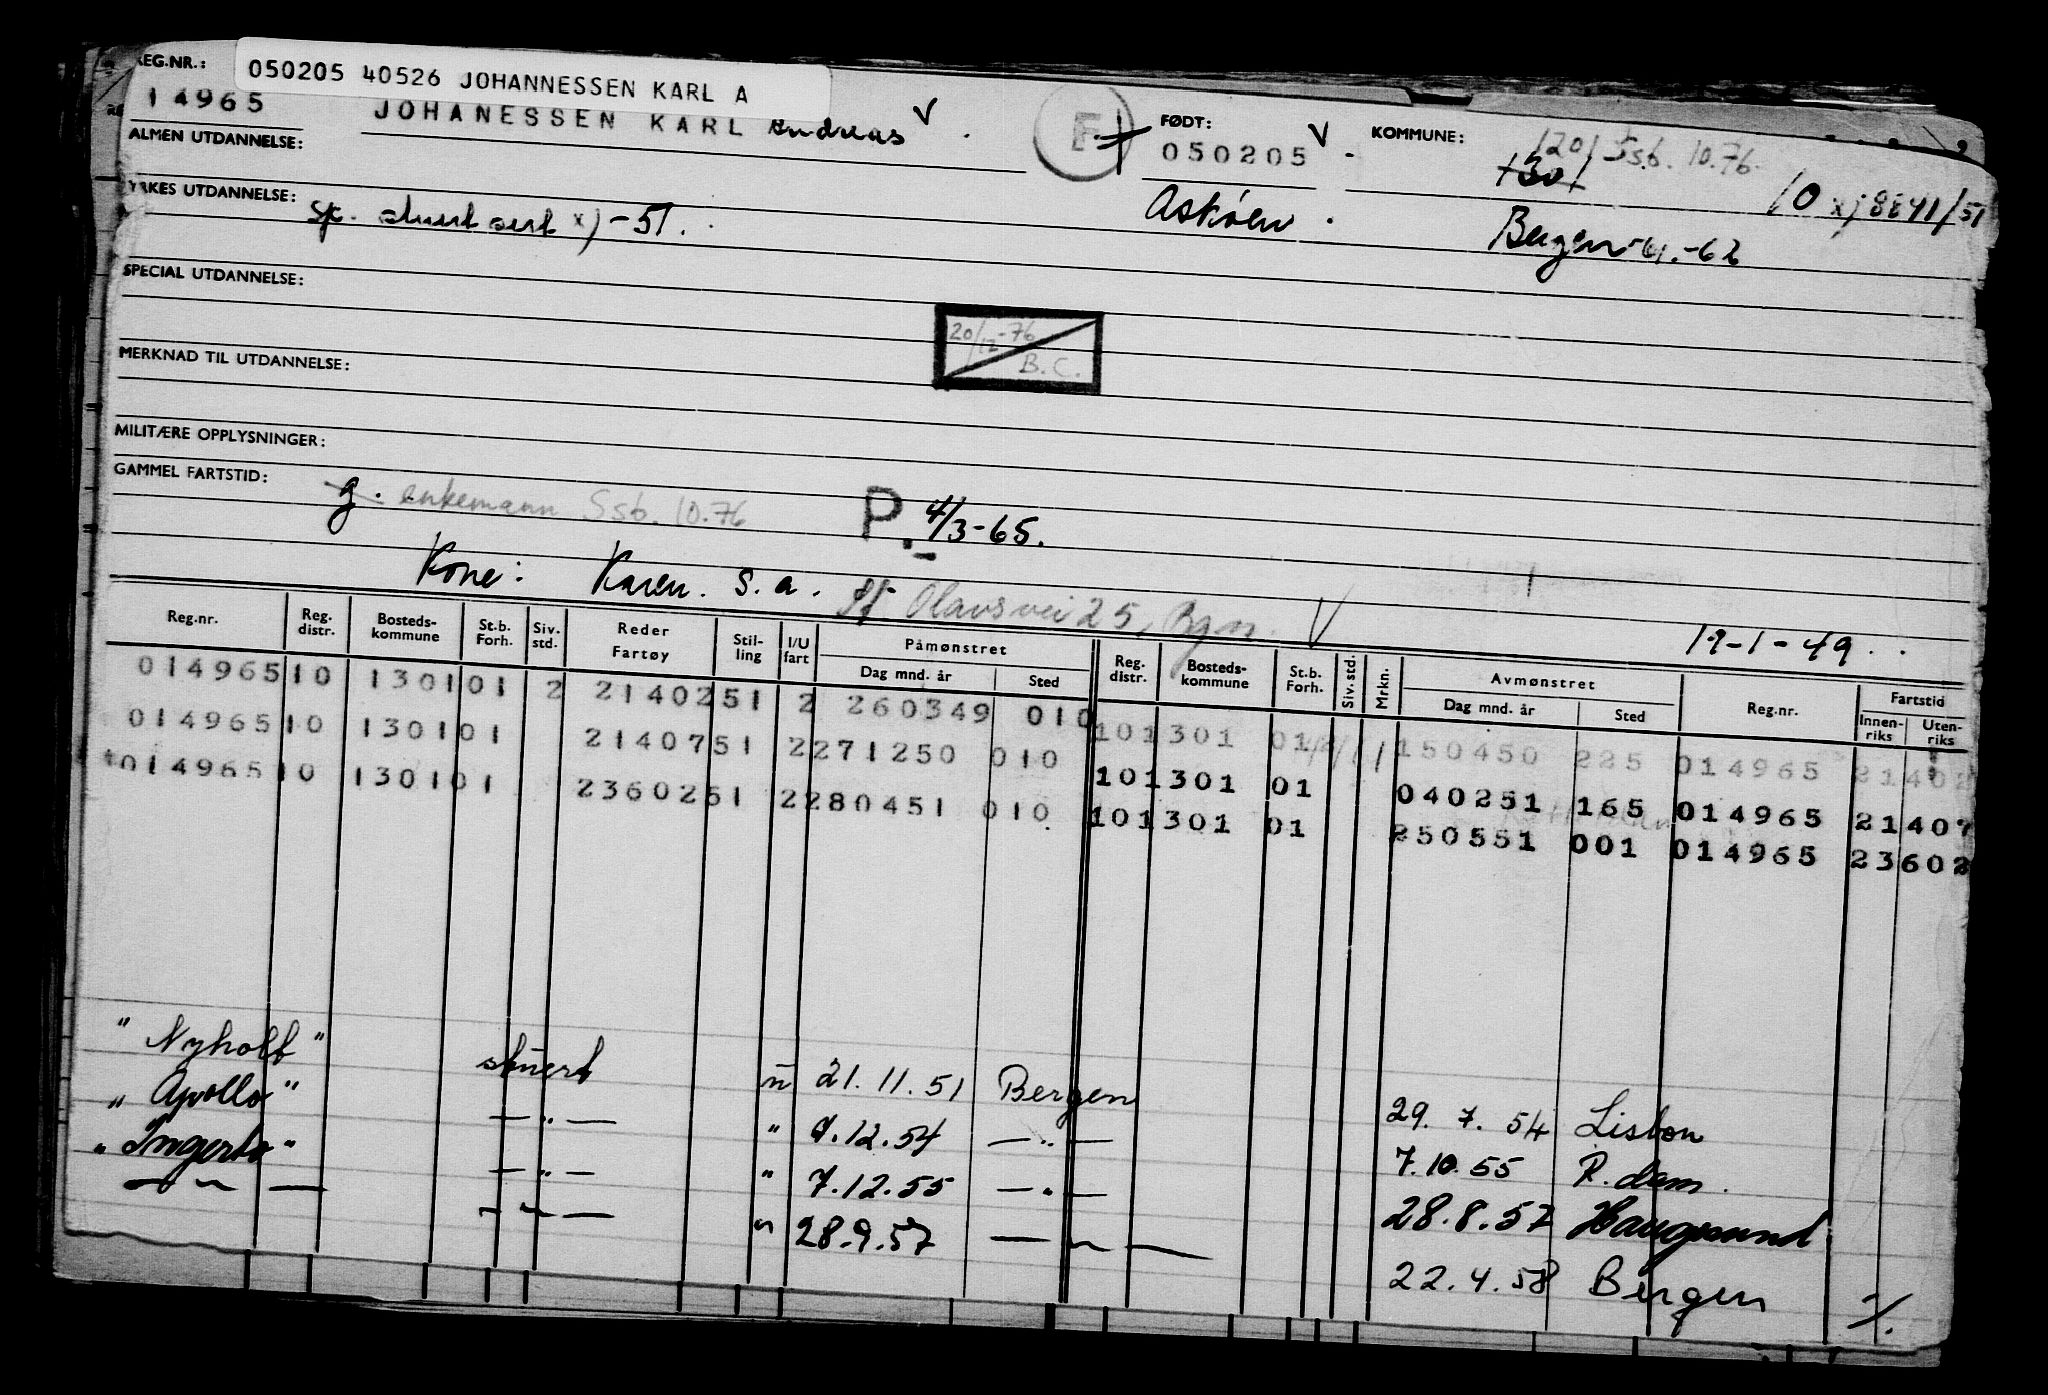 REG.NR.:
050205 40526 JOHANNESSEN KARL A
14965 JOHANESSEN KARL Andreas V .
E
FØDT: V
050205 -
KOMMUNE: 1201 Ssb. 10.76.
1301
10 x) 8841/51
ALMEN UTDANNELSE:
YRKES UTDANNELSE: sp. stuert sert x) -51.
Askøen .
Bergen 61.-62
SPECIAL UTDANNELSE:
20/12-76
B.C.
MERKNAD TIL UTDANNELSE:
MILITÆRE OPPLYSNINGER:
GAMMEL FARTSTID:
g. enkemann Ssb. 10.76
P. 4/3-65.
Kone: Karen. S. a. St Olavsvei 25, Bgn. V
19-1-49 . .
Reg.nr. Reg. distr. Bosteds-kommune St.b. Forh. Siv. std. Reder Fartøy Stil-ling I/U fart Påmønstret Dag mnd. år Sted Reg. distr. Bosteds-kommune St.b. Forh. Siv. std. Mrkn. Avmønstret Dag mnd. år Sted Reg.nr. Fartstid Innen-riks Uten-riks
014965 10 1301 01 2 21402 51 2 260349 010 10 1301 01 150450 225 014965 21402
014965 10 1301 01 21407 51 2 271250 010 10 1301 01 040251 165 014965 21407
014965 10 1301 01 23602 51 2 280451 010 10 1301 01 250551 001 014965 23602
"Nyholt" stuert u 21.11.51 Bergen 29.7.54 Lisbon
"Apollo" — " — " 9.12.54 — " — 7.10.55 R.dam.
"Ingerto" — " — " 7.12.55 — " — 28.8.57 Haugesund
— " — — " — " 28.9.57 — " — 22.4.58 Bergen %.